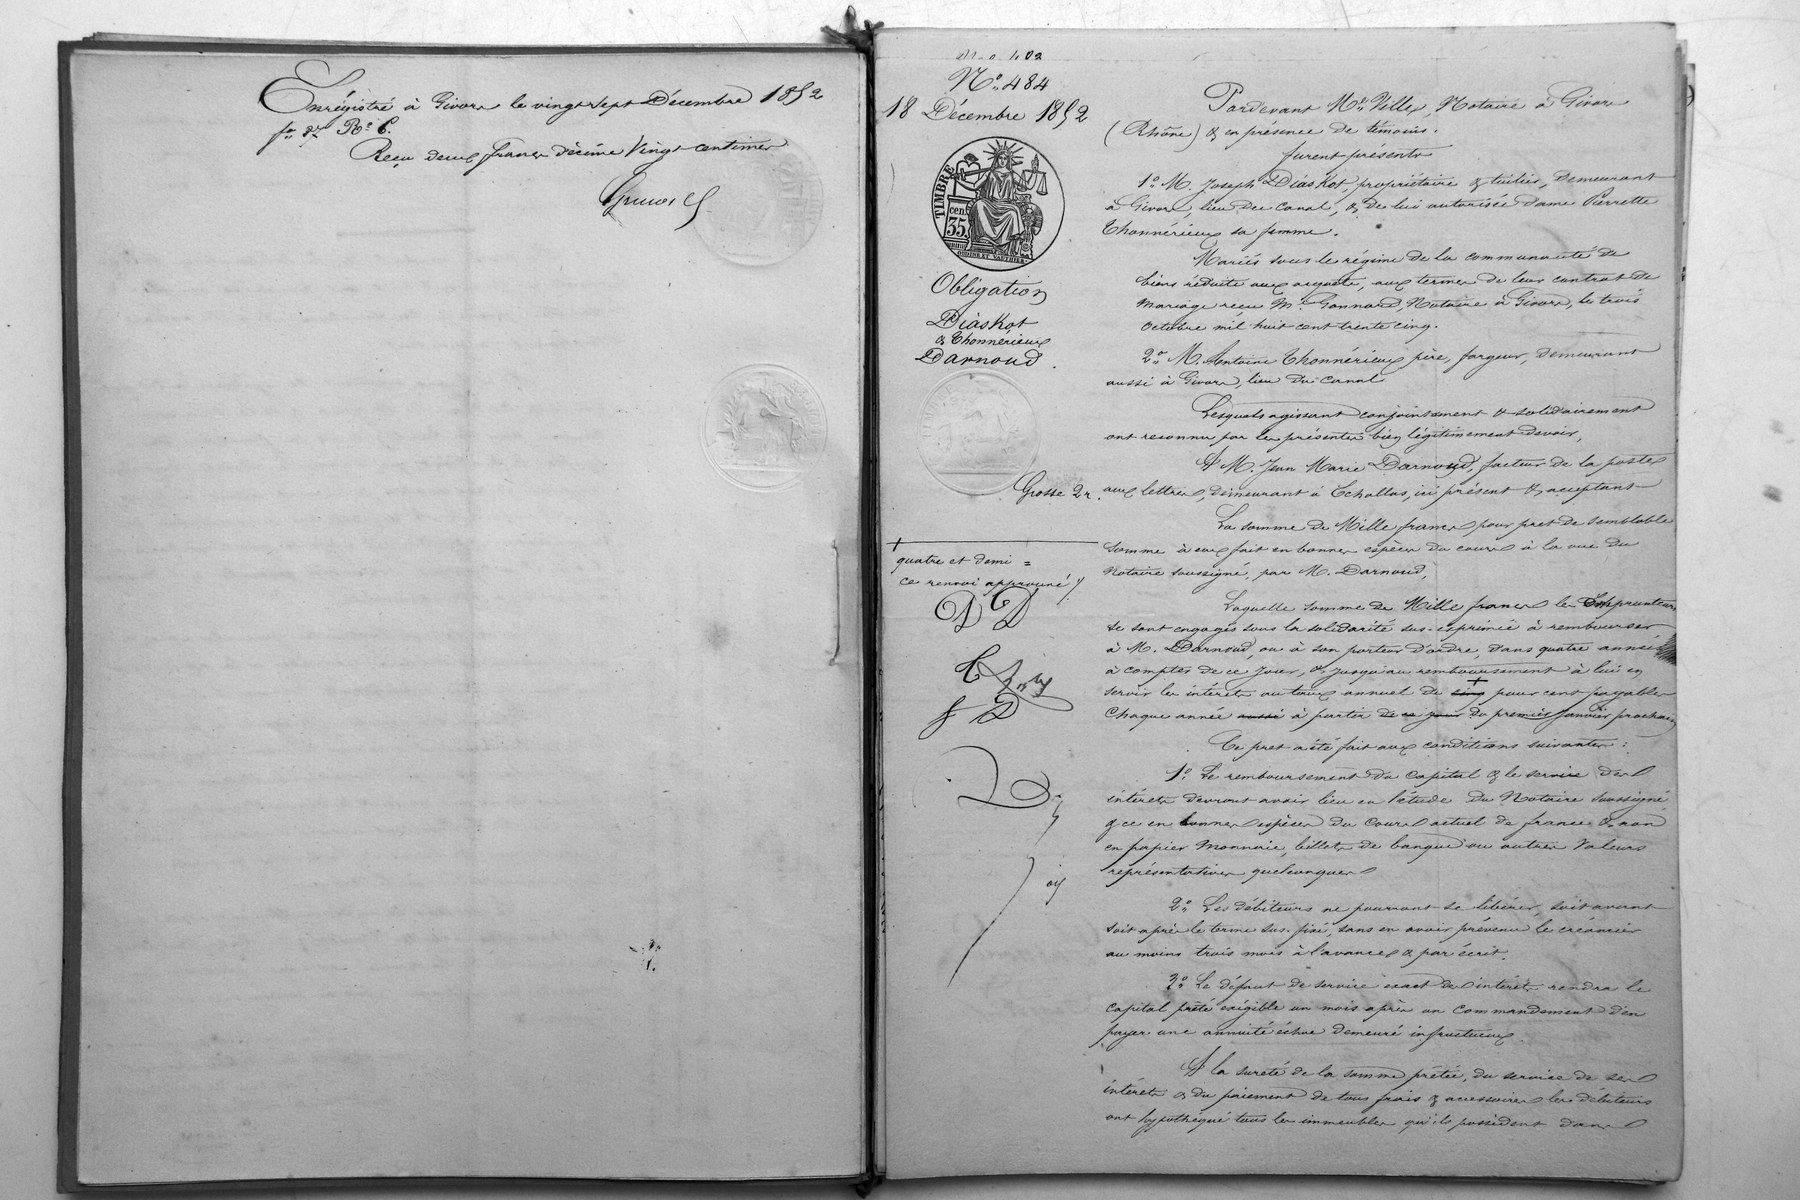 Enrégistré à Givors le vingt sept Décembre 1852
fo Ro C.
Reçu deux francs décime Vingt centimes
No 484
18 Décembre 1852
TIMBRE
35 cen
Obligation
Diaskot
& Thonnérieux
Darnoud.
Grosse 2r.
quatre et demi =
ce renvoi approuvé
Pardevant Me Ville, Notaire à Givors
(Rhône) & en présence de témoins.
furent présents
1o M. Joseph Diaskot, propriétaire & tuilier, demeurant
à Givors, lieu du Canal, & de lui autorisée dame Pierrette
Thonnérieux sa femme.
Mariés sous le régime de la communauté de
biens réduite aux acquets, aux termes de leur contrat de
mariage reçu Me Gonnard, Notaire à Givors, le trois
octobre mil huit cent trente cinq.
2o M. Antoine Thonnérieux père, forgeur, demeurant
aussi à Givors, lieu du canal
Lesquels agissant conjointement & solidairement
ont reconnu par les présentes bien légitimement devoir,
A M. Jean Marie Darnoud, facteur de la poste
aux lettres, demeurant à Echallas, ici présent & acceptant
La somme de Mille francs pour pret de semblable
somme à eux fait en bonnes espèces du cours à la vue du
Notaire soussigné, par M. Darnoud,
Laquelle somme de Mille francs les Emprunteurs
se sont engagés sous la solidarité sus-exprimée à rembourser
à M. Darnoud, ou à son porteur d'ordre, dans quatre années
à compter de ce jour, & jusqu'au remboursement à lui en
servir les intérêts au taux annuel de cinq pour cent payables
Chaque année aussi à partir de ce jour du premier janvier prochain
Ce pret a été fait aux conditions suivantes :
1o Le remboursement du capital & le service des
intérêts devront avoir lieu en l'étude du Notaire soussigné
& ce en bonnes espèces du Cours actuel de france & non
en papier monnaie, billets de banque ou autres Valeurs
représentatives quelconques
2o Les débiteurs ne pourront se libérer, soit avant
soit après le terme sus-fixé, sans en avoir prévenu le créancier
au moins trois mois à l'avance & par écrit.
3o Le défaut de service exact des intérêts rendra le
capital prêté exigible un mois après un Commandement d'en
payer une annuité échue demeuré infructueux.
A la sureté de la somme prêtée, du service de ses
intérêts & du paiement de tous frais & accessoires les débiteurs
ont hypothéqué tous les immeubles qu'ils possèdent dans